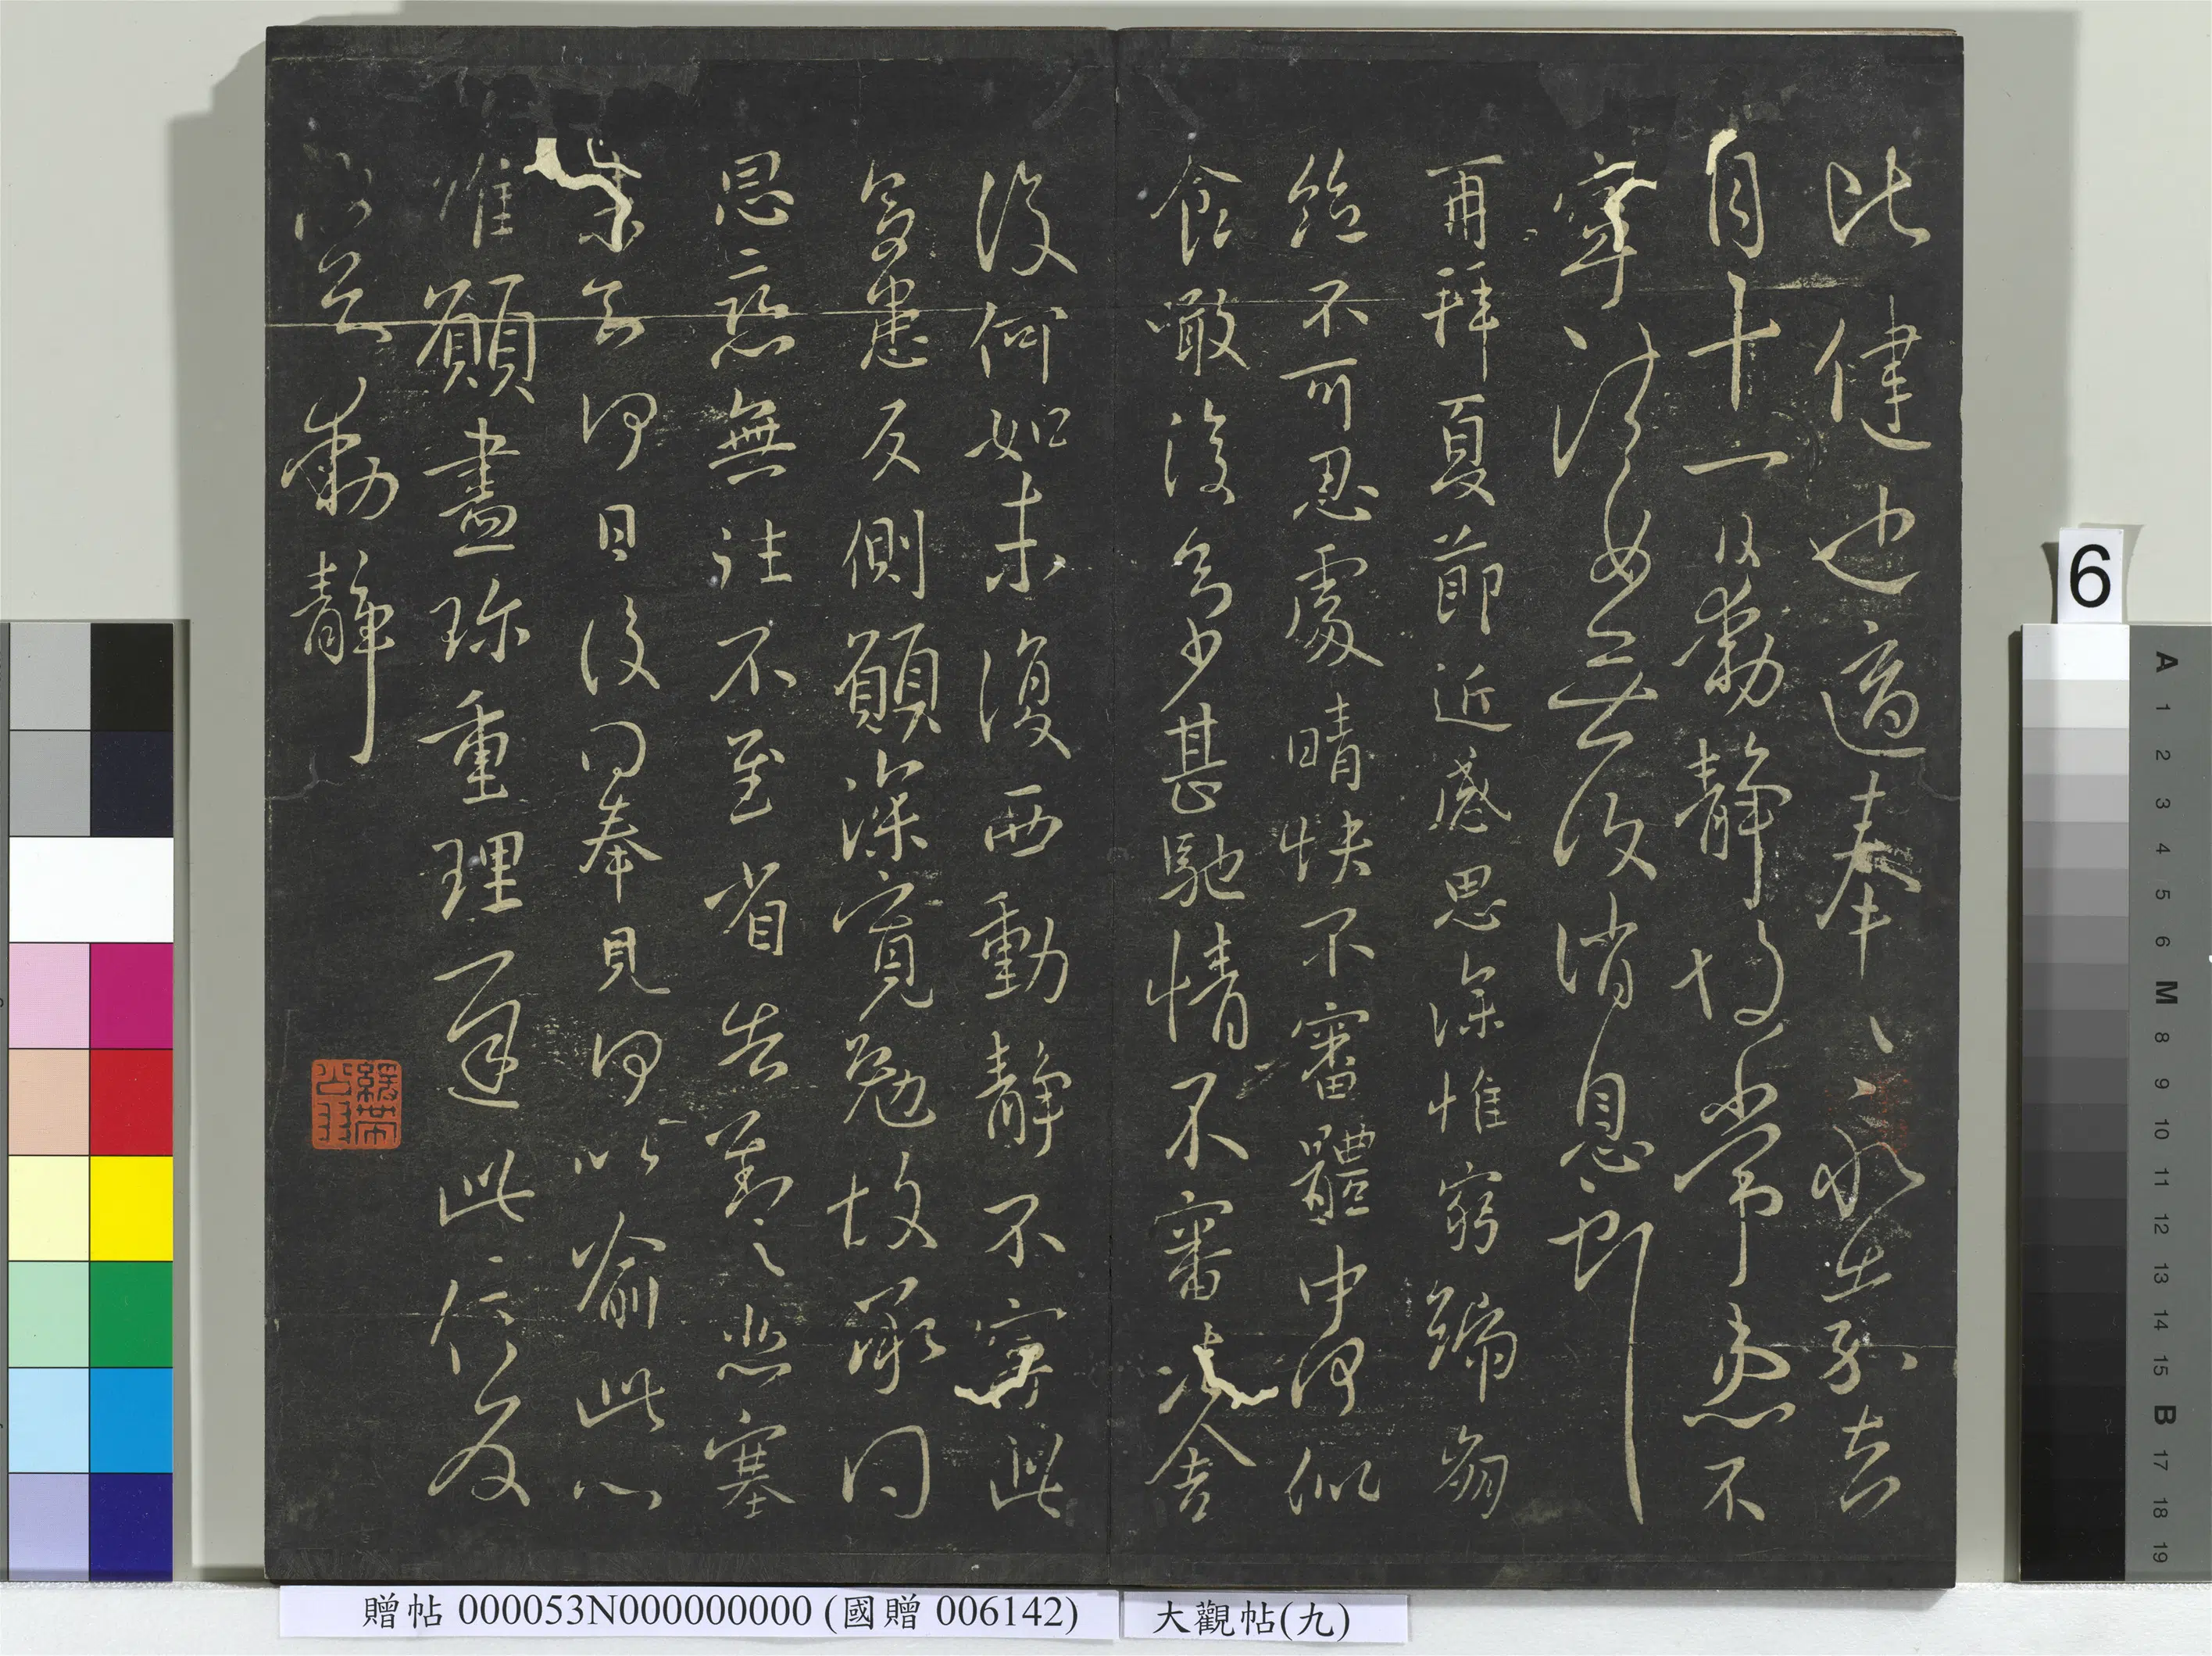 比健也適奉永嘉去
月十一日動靜故常患不
寧諸女無復消息
再拜夏節近感思深惟窮號崩
絕不可忍處晴快不審體中何似
食噉復多少甚馳情不審舍
復何如未復西動靜不寧此
多患反側願深寬勉故承問
恩慈無往不至省告對之悲塞
未知何日復奉見何以喻此心
惟願盡珍重理遲此信反
知動靜
6
A 1 2 3 4 5 6 M 8 9 10 11 12 13 14 15 B 17 18 19
贈帖 000053N000000000 (國贈 006142)
大觀帖(九)